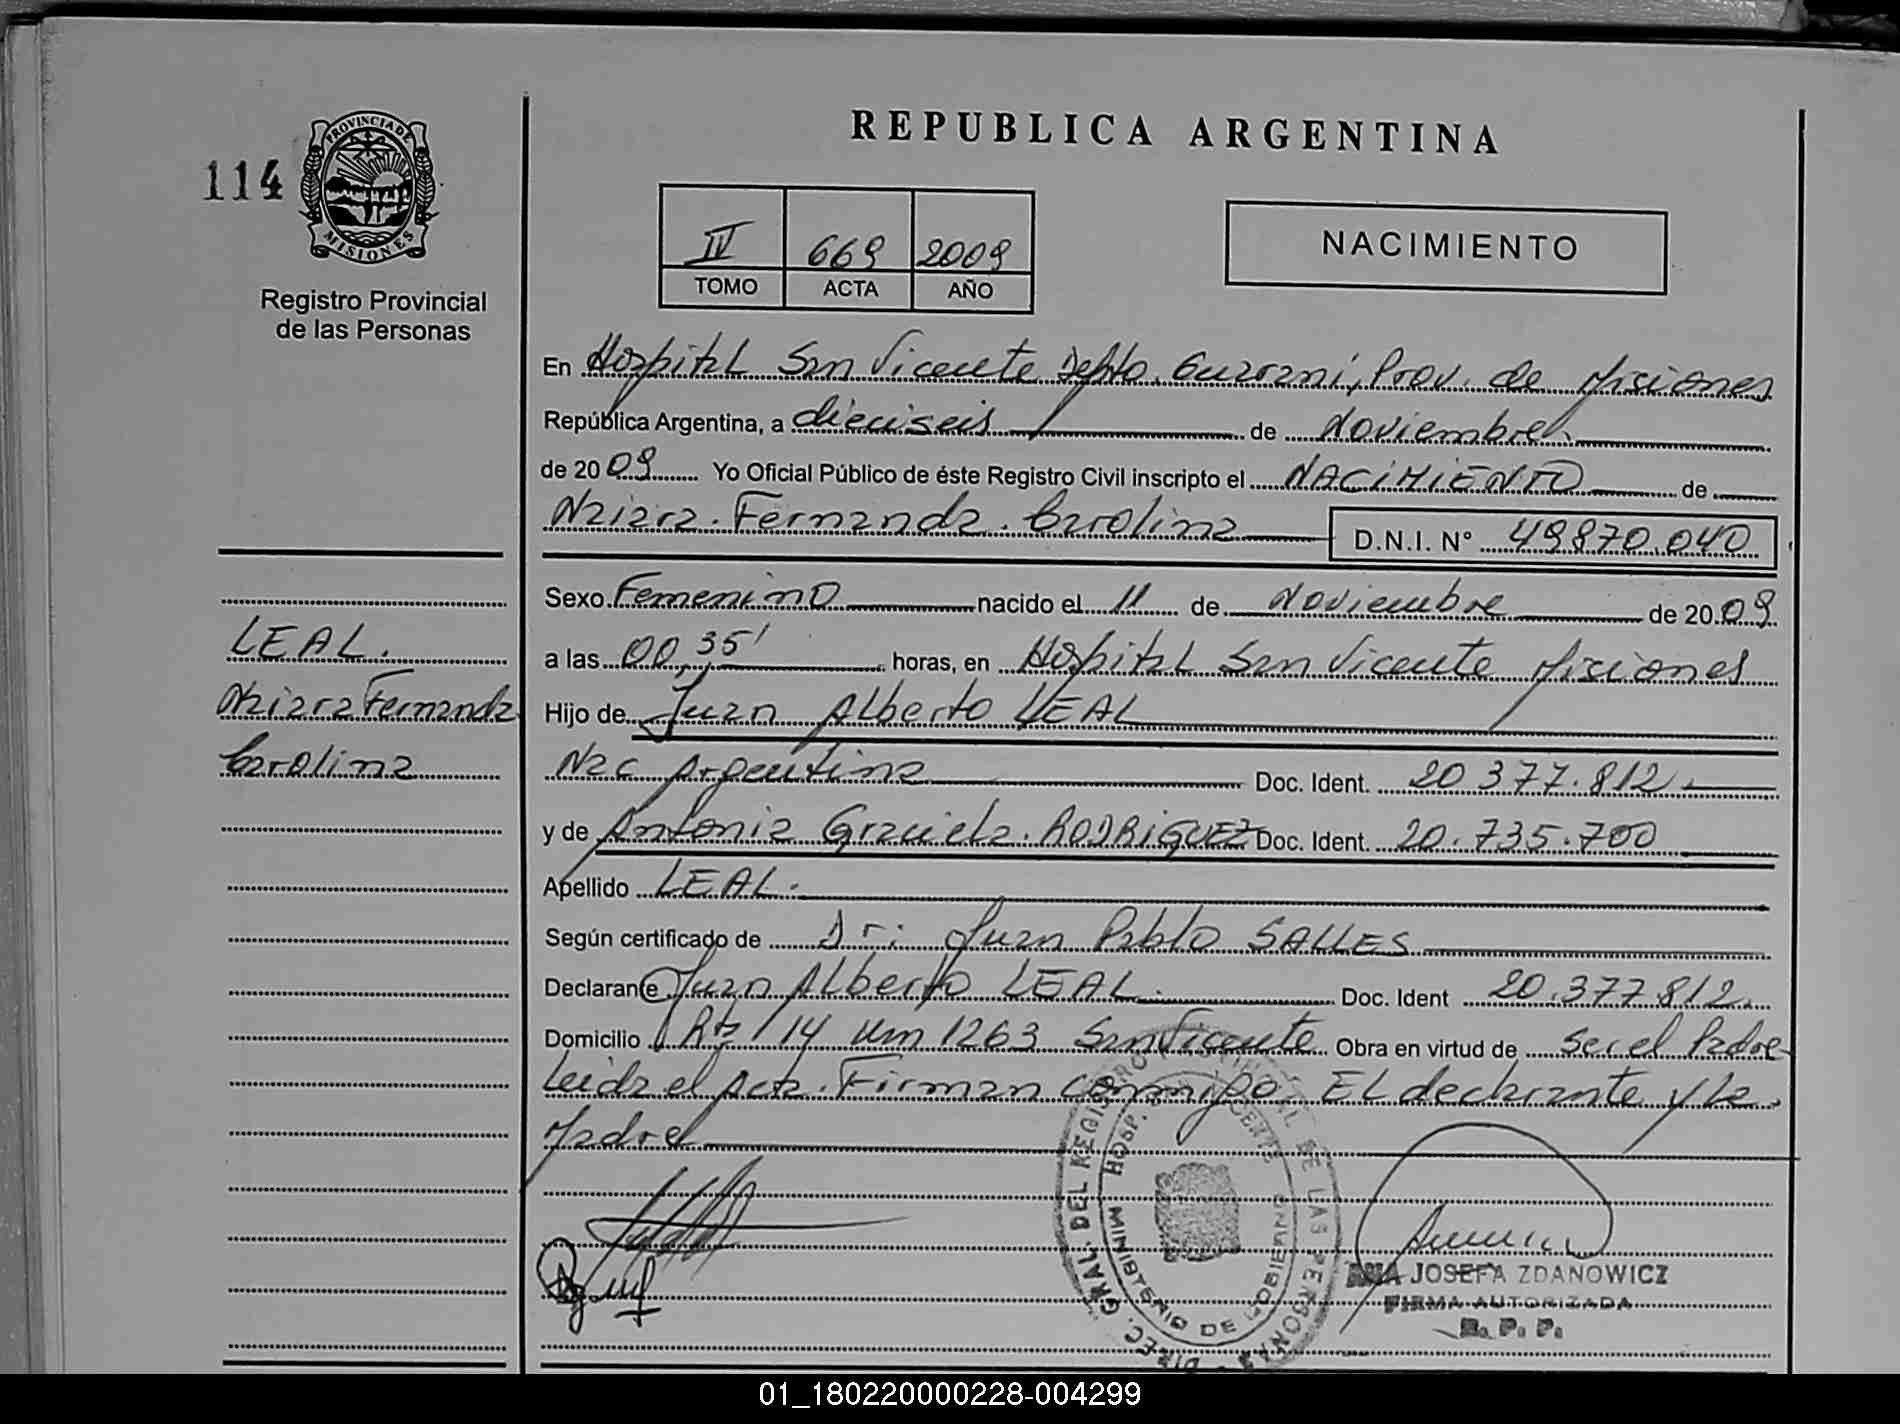 REPUBLICA ARGENTINA
114
PROVINCIA DE
MISIONES
Registro Provincial
de las Personas
IV 669 2009
TOMO ACTA AÑO
NACIMIENTO
En Hospital San Vicente Depto. Guarani, Prov. de Misiones
República Argentina, a dieciseis de Noviembre
de 2009 Yo Oficial Público de éste Registro Civil inscripto el NACIMIENTO de
Naiara Fernanda Carolina D.N.I. N° 49870.040
Sexo Femenino nacido el 11 de Noviembre de 2009
a las 00,35' horas, en Hospital San Vicente Misiones
Hijo de Juan Alberto LEAL
Nac Argentina Doc. Ident. 20 377.812
y de Antonia Graciela RODRIGUEZ Doc. Ident. 20.735.700
Apellido LEAL.
Según certificado de Dr: Juan Pablo SALLES
Declarante Juan Alberto LEAL Doc. Ident 20.377.812
Domicilio Rta 14 Km 1263 San Vicente Obra en virtud de ser el Padre
Leida el Acta. Firman conmigo El declarante y la
Madre
LEAL.
Naiara Fernanda
Carolina
DIREC. GRAL. DEL REGISTRO DE LAS PERSONAS
HOSP. MINISTERIO DE GOBIERNO
ANA JOSEFA ZDANOWICZ
FIRMA AUTORIZADA
R. P. P.
01_180220000228-004299